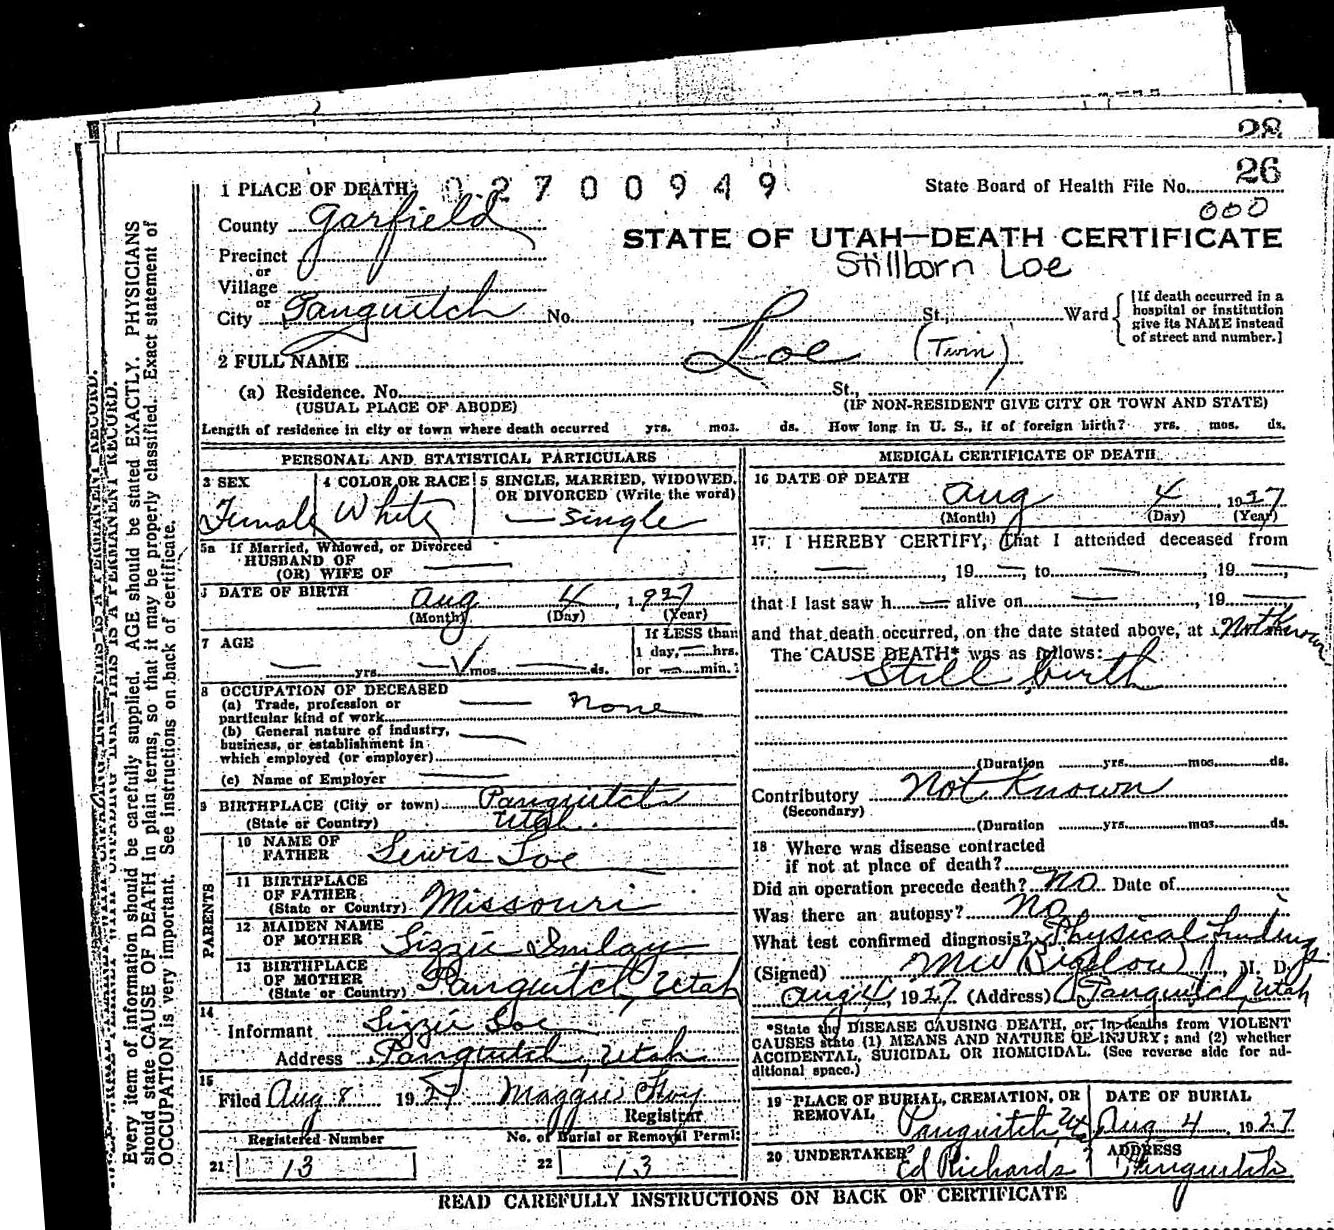 28
26
1 PLACE OF DEATH 02700949 State Board of Health File No.
000
County Garfield
STATE OF UTAH—DEATH CERTIFICATE
Stillborn Loe
Precinct
or
Village
or
City Panguitch No. St., Ward
[If death occurred in a
hospital or institution
give its NAME instead
of street and number.]
2 FULL NAME Loe (Twin)
(a) Residence. No. St.,
(USUAL PLACE OF ABODE) (IF NON-RESIDENT GIVE CITY OR TOWN AND STATE)
Length of residence in city or town where death occurred yrs. mos. ds. How long in U. S., if of foreign birth? yrs. mos. ds.
PERSONAL AND STATISTICAL PARTICULARS
3 SEX
Female
4 COLOR OR RACE
White
5 SINGLE, MARRIED, WIDOWED,
OR DIVORCED (Write the word)
— Single
5a If Married, Widowed, or Divorced
HUSBAND OF
(OR) WIFE OF —
DATE OF BIRTH Aug 4, 1927
(Month) (Day) (Year)
7 AGE
— yrs. — mos. — ds.
If LESS than
1 day, — hrs.
or — min.
8 OCCUPATION OF DECEASED
(a) Trade, profession or
particular kind of work — none
(b) General nature of industry,
business, or establishment in
which employed (or employer) —
(c) Name of Employer —
9 BIRTHPLACE (City or town) Panguitch
(State or Country) Utah.
PARENTS
10 NAME OF
FATHER Lewis Loe
11 BIRTHPLACE
OF FATHER
(State or Country) Missouri
12 MAIDEN NAME
OF MOTHER Lizzie Imlay
13 BIRTHPLACE
OF MOTHER
(State or Country) Panguitch, Utah
14
Informant Lizzie Loe
Address Panguitch, Utah
15
Filed Aug 8 1927 Maggie Foy
Registrar
Registered Number No. of Burial or Removal Permit
21 13 22 13
MEDICAL CERTIFICATE OF DEATH
16 DATE OF DEATH
Aug 4, 1927
(Month) (Day) (Year)
17 I HEREBY CERTIFY, that I attended deceased from
—, 19—, to —, 19—,
that I last saw h — alive on —, 19 —
and that death occurred, on the date stated above, at Not Known
The CAUSE DEATH* was as follows:
Still birth
(Duration yrs. mos. ds.
Contributory Not Known
(Secondary)
(Duration yrs. mos. ds.
18 Where was disease contracted
if not at place of death?
Did an operation precede death? No Date of
Was there an autopsy? No
What test confirmed diagnosis? Physical findings
(Signed) MW Bigelow, M. D.
Aug 4, 1927 (Address) Panguitch, Utah
*State the DISEASE CAUSING DEATH, or, in deaths from VIOLENT
CAUSES state (1) MEANS AND NATURE OF INJURY; and (2) whether
ACCIDENTAL, SUICIDAL OR HOMICIDAL. (See reverse side for ad-
ditional space.)
19 PLACE OF BURIAL, CREMATION, OR
REMOVAL Panguitch, Ut
DATE OF BURIAL
Aug 4, 1927
20 UNDERTAKER
Ed Richards
ADDRESS
Panguitch
READ CAREFULLY INSTRUCTIONS ON BACK OF CERTIFICATE
THIS IS A PERMANENT RECORD.
Every item of information should be carefully supplied. AGE should be stated EXACTLY. PHYSICIANS
should state CAUSE OF DEATH in plain terms, so that it may be properly classified. Exact statement of
OCCUPATION is very important. See instructions on back of certificate.